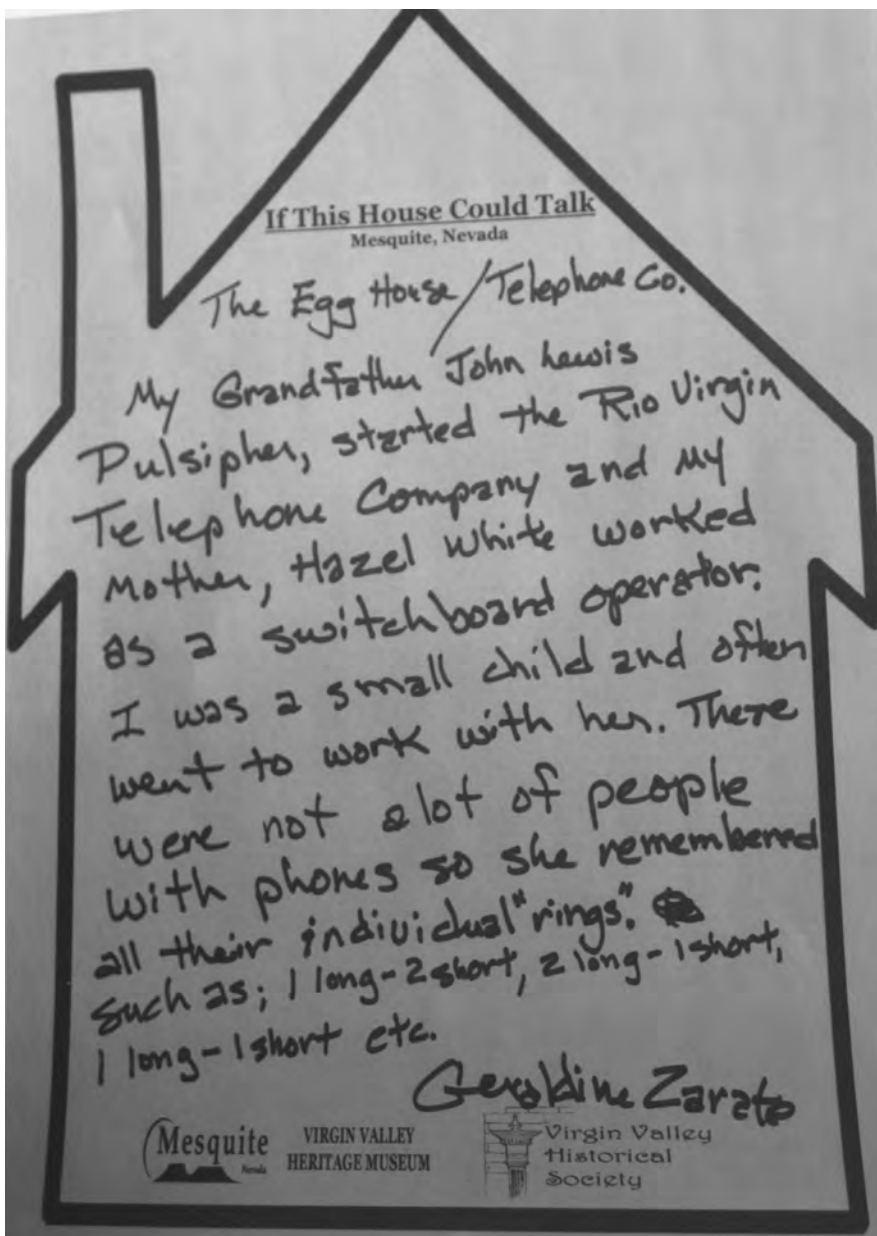 If This House Could Talk
Mesquite, Nevada
The Egg House/Telephone Co.
My Grandfather John Lewis
Pulsipher, started the Rio Virgin
Telephone Company and my
Mother, Hazel White worked
as a switchboard operator.
I was a small child and often
went to work with her. There
were not alot of people
with phones so she remembered
all their individual "rings".
Such as; 1 long-2 short, 2 long-1 short,
1 long-1 short etc.
Geraldine Zarate
Mesquite
Nevada
VIRGIN VALLEY
HERITAGE MUSEUM
Virgin Valley
Historical
Society